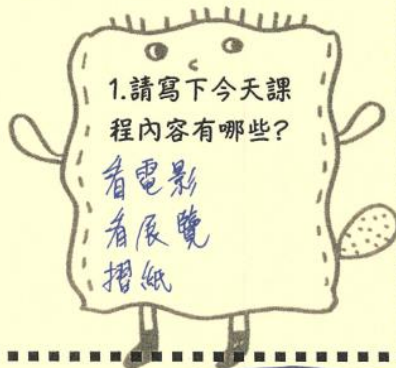 1.請寫下今天課
程內容有哪些?
看電影
看展覽
摺紙